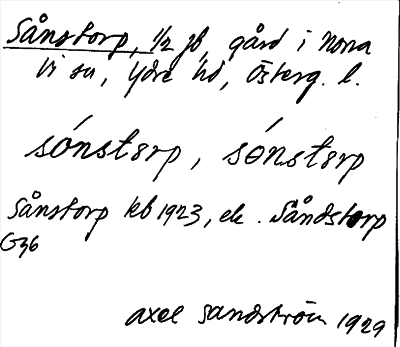 Sånstorp, 1/2 jb, gård i Norra
Vi sn, Ydre hd, Österg. l.
sónstɘrp, sónstɘrp
Sånstorp kb 1923, ek. Såndstorp
G36
Axel Sandström 1929